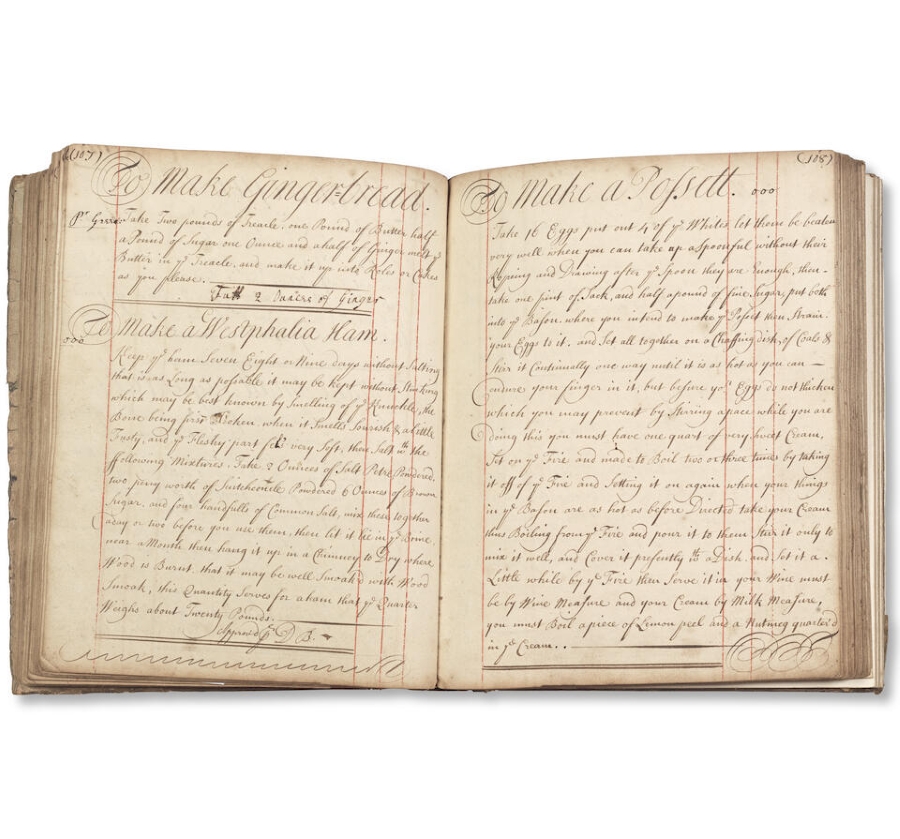 (107)
To Make Ginger=bread.
Take Two pounds of Treacle, one Pound of Butter half
a Pound of Sugar one Ounce and a half of Ginger melt yᵉ
Butter in yᵉ Treacle, and make it up into Roles or Cakes
as you please.
2 Ounces of Ginger
To Make a Westphalia Ham.
ooo
Keep yᵉ ham Seven Eight or Nine days without Salting
that is as Long as possable it may be kept without Stinking
which may be best known by Smelling of yᵉ Knuckle, the
Bone being first Broken, when it Smells Sourish & a Little
Fusty, and yᵉ Fleshy part feels very Soft, then Salt it wᵗʰ the
following Mixture. Take 2 Ounces of Salt Petre Powdered,
two peny worth of Powdered 6 Ounces of Brown
Sugar, and four handfulls of Common Salt, mix them together
a day or two before you use them, then let it lie in yᵉ
near a Month then hang it up in a Chimney to Dry where
Wood is Burnt, that it may be well Smoak'd with Wood
Smoak, this Quantity Serves for a ham that yᵉ Quarter
Weighs about Twenty Pounds.
(108)
To Make a Possett. ooo
Take 16 Eggs put out 4 of yᵉ Whites let them be beaten
very well when you can take up a Spoonful without their
Roping and Drawing after yᵉ Spoon they are Enough, then -
take one pint of Sack, and half a pound of fine Sugar, put both
into yᵉ Bason where you intend to make yᵉ Posset then Strain
your Eggs to it, and Set all together on a Chaffing dish of Coals &
Stir it Continually one way until it is as hot as you can -
endure your finger in it, but before yoʳ Eggs do not thicken
which you may prevent by Stiring apace while you are
Doing this you must have one quart of very Sweet Cream,
Set on yᵉ Fire and made to Boil two or three times by taking
it off of yᵉ Fire and Setting it on again when your things
in yᵉ Bason are as hot as before Directed take your Cream
thus Boiling from yᵉ Fire and pour it to them Stir it only to
mix it well, and Cover it presently wᵗʰ a Dish and Set it a
Little while by yᵉ Fire then Serve it in your Wine must
be by Wine Measure and your Cream by Milk Measure,
you must Boil a piece of Limon peel and a Nutmeg quarter'd
in yᵉ Cream..